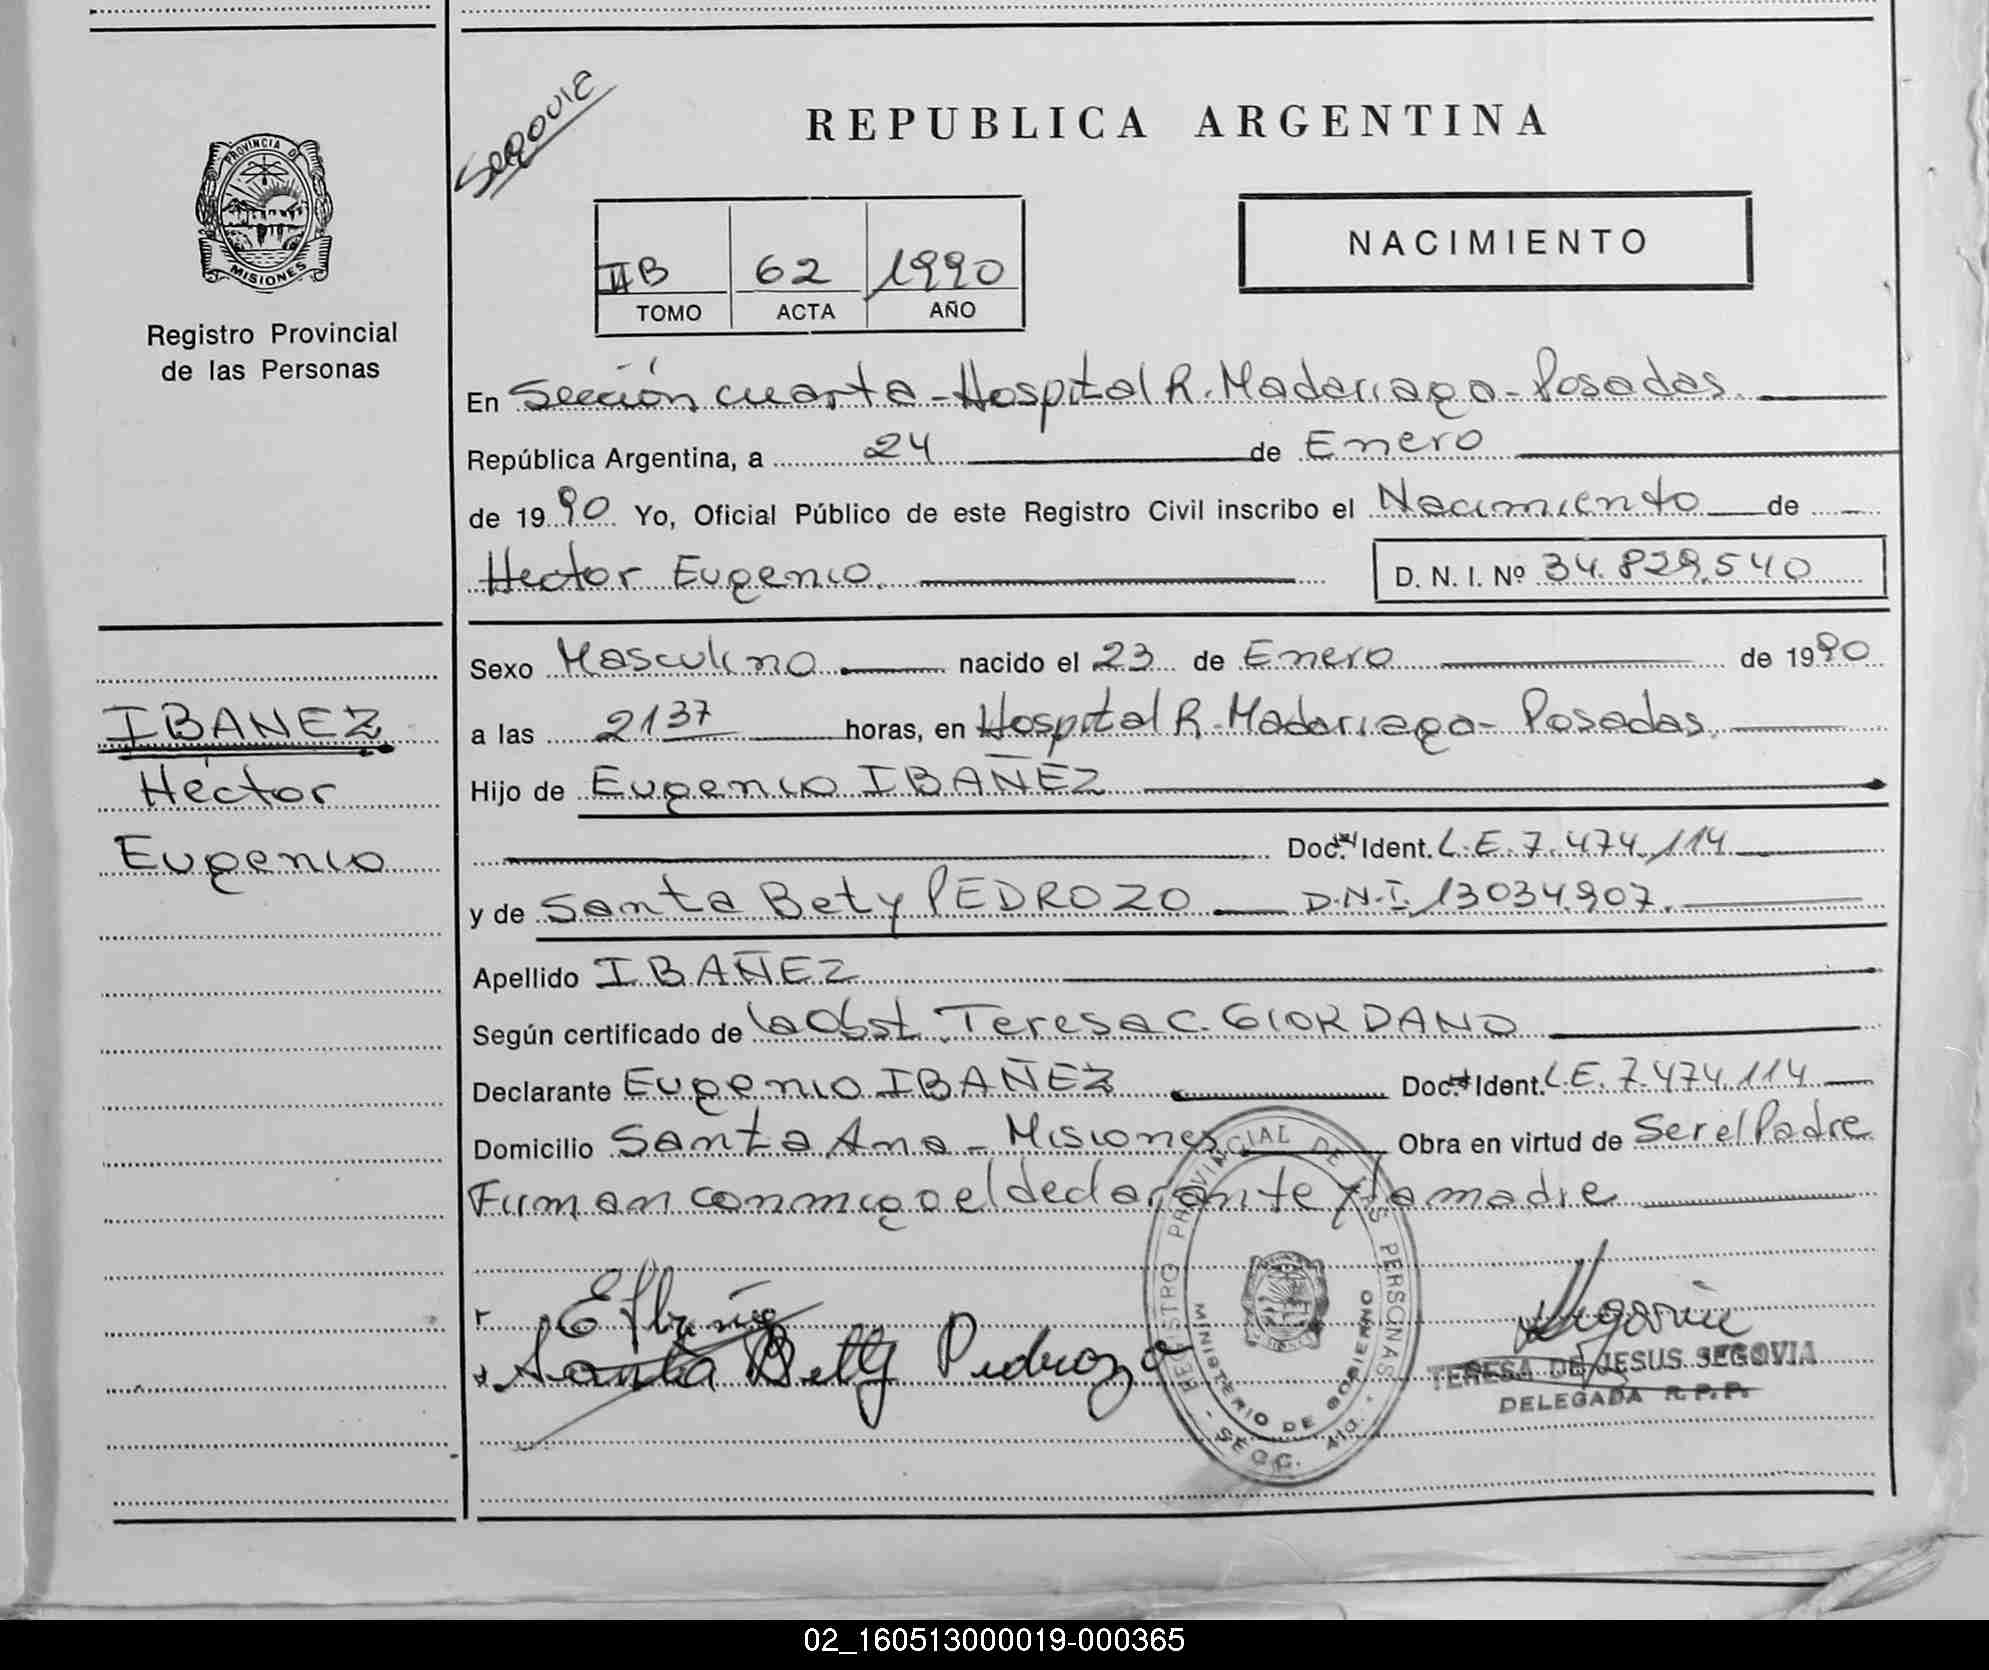 Segovia
REPUBLICA ARGENTINA
PROVINCIA DE
MISIONES
Registro Provincial
de las Personas
NACIMIENTO
IIB 62 1990
TOMO ACTA AÑO
En Sección cuarta - Hospital R. Madariaga - Posadas.
República Argentina, a 24 de Enero
de 1990 Yo, Oficial Público de este Registro Civil inscribo el Nacimiento de
Hector Eugenio. D. N. I. Nº 34.829.540
Sexo Masculino nacido el 23 de Enero de 1990
IBANEZ
Héctor
Eugenio
a las 2137 horas, en Hospital R. Madariaga - Posadas.
Hijo de Eugenio IBAÑEZ
Doc. Ident. L.E. 7.474.114
y de Santa Bety PEDROZO D.N.I. 13034.907.
Apellido IBAÑEZ
Según certificado de la Obst. Teresa C. GIORDANO
Declarante Eugenio IBAÑEZ Doc. Ident. L.E. 7.474.114
Domicilio Santa Ana - Misiones Obra en virtud de Ser el Padre
Firman conmigo el declarante y la madre
Santa Betty Pedrozo
REGISTRO PROVINCIAL DE LAS PERSONAS
MINISTERIO DE GOBIERNO
SECC. 4ta.
Segovia
TERESA DE JESUS SEGOVIA
DELEGADA R. P. P.
02_160513000019-000365